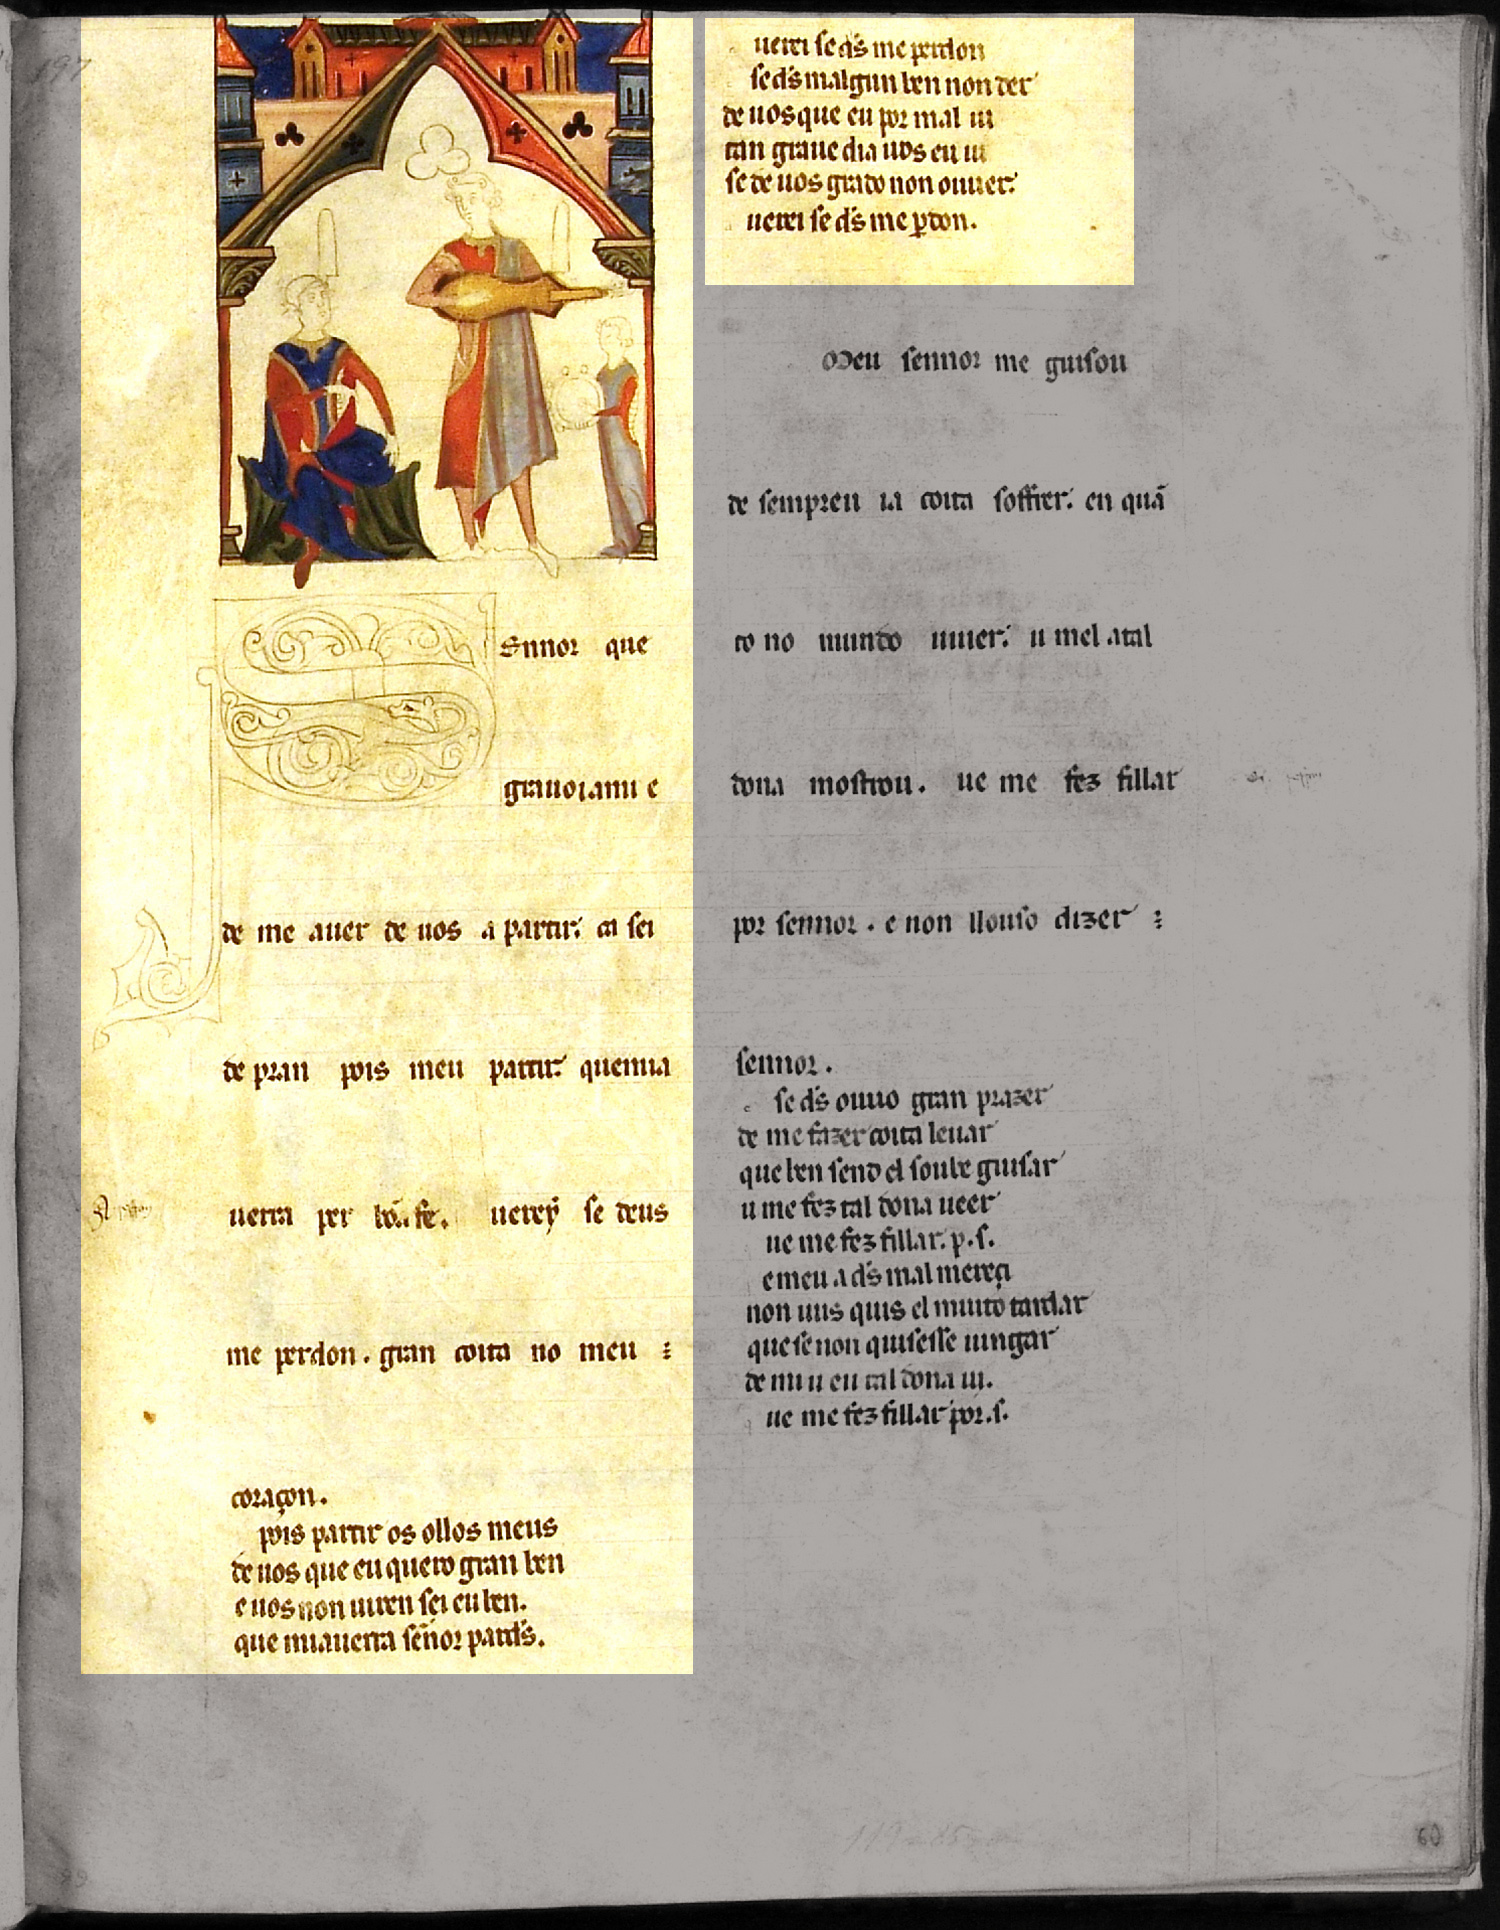 197
Sennor que
grauoianu e
de me auer de uos a partir. ca sei
de pran pois meu partir. quemia
uerra per bõa fe. uerey se deus
me perdon. gran coita no meu
coraçon.
pois partir os ollos meus
de uos que eu quero gran ben
e uos non uiren sei eu ben.
que miauerra señor par ds.
uerei se ds me perdon
se ds malgun ben non der
de uos que eu por mal ui
tan graue dia uos eu ui
se de uos grado non ouuer.
uerei se ds me pdon.
Meu sennor me guisou
de sempreu ia coita soffrer. en quã
to no mundo uiuer. u mel atal
dona mostrou. ue me fez fillar
por sennor. e non llouso dizer
sennor.
se ds ouuo gran prazer
de me fazer coita leuar
que ben send el soube guisar
u me fez tal dona ueer
ue me fez fillar. p. s.
e meu a ds mal mereçi
non uus quis el muito tardar
que se non quisesse uingar
de mi u eu tal dona ui.
ue me fez fillar por. s.
60